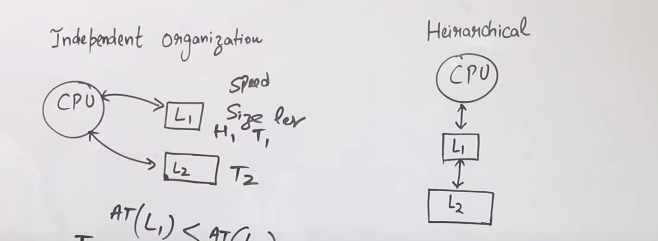 Independent Organization
CPU
L1
Speed
Size les
H1 T1
L2
T2
AT(L1) < AT(L
T
Heirarchical
CPU
L1
L2